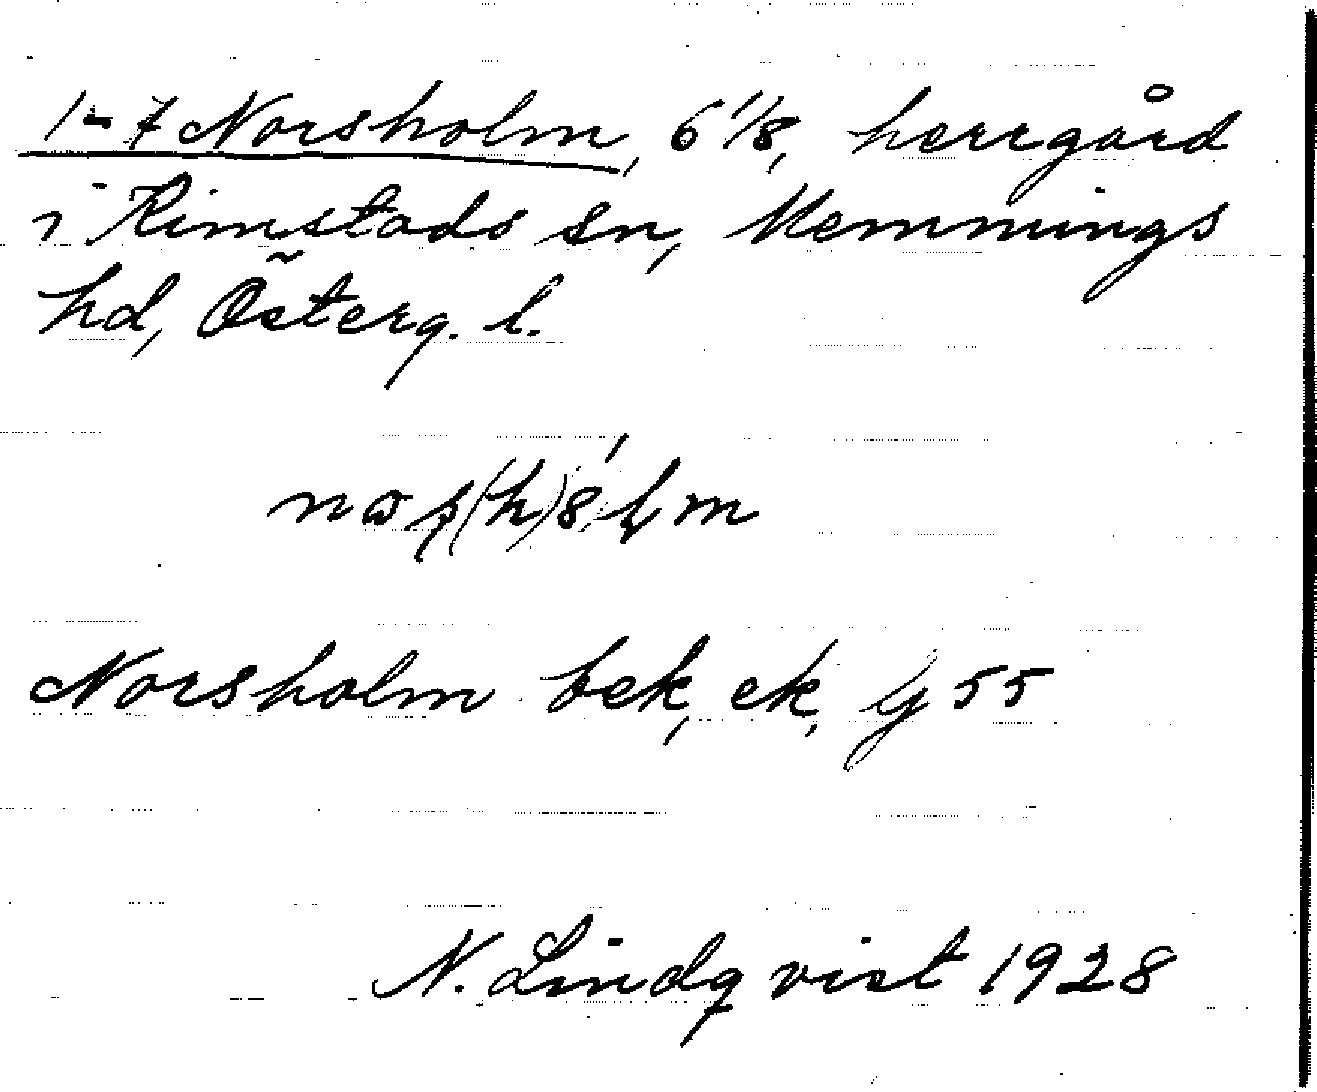 1-7 Norsholm, 6 1/8, herrgård
i Kimstads sn, Memmings
hd, Österg. l.
Norsholm bek, ek, Gj 55
N. Lindqvist 1928